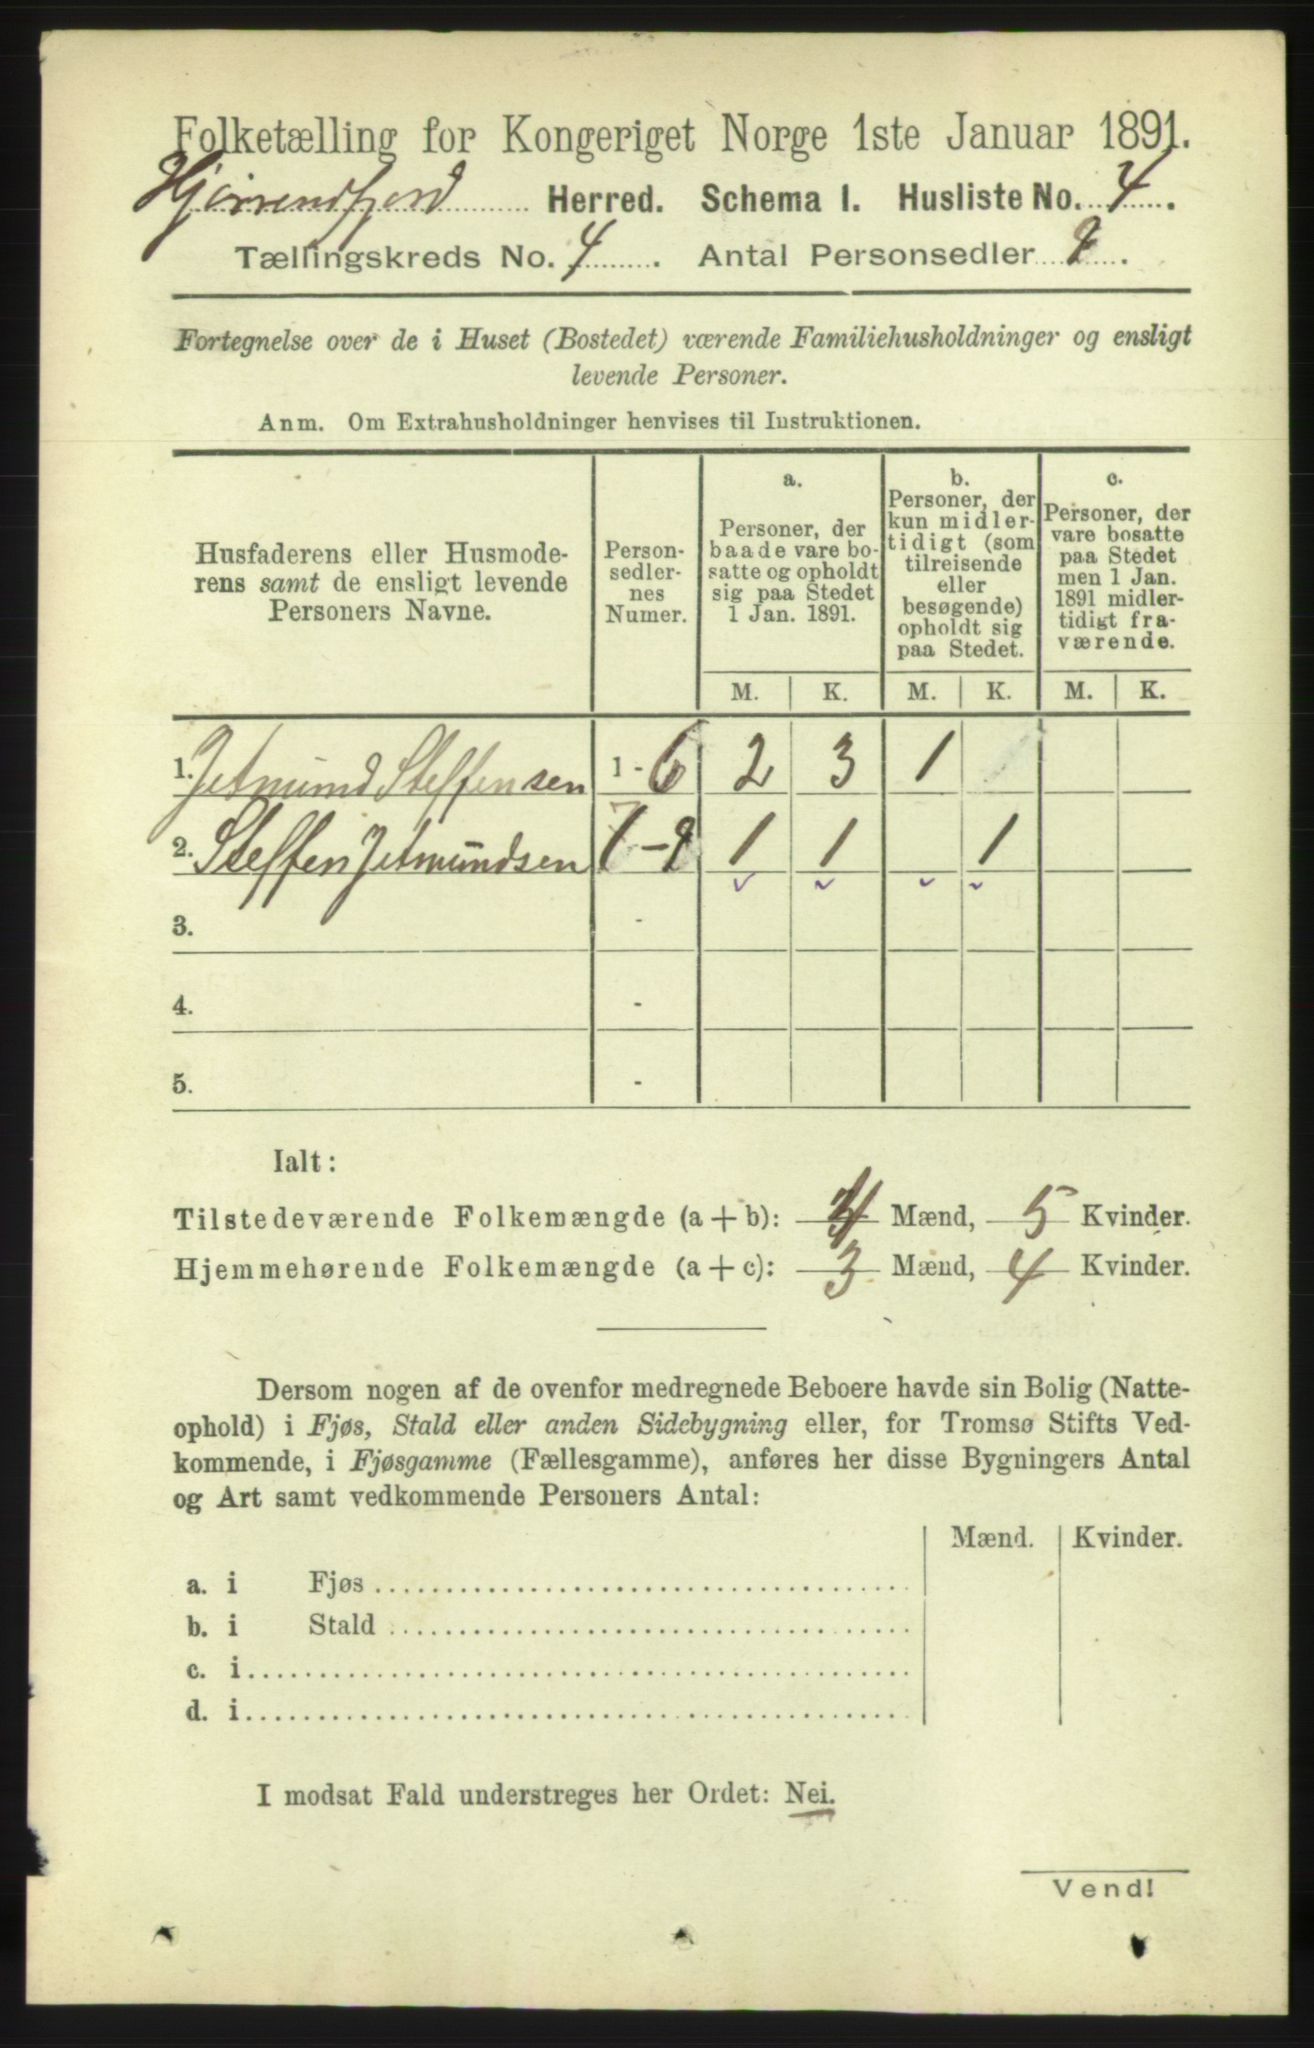 Folketælling for Kongeriget Norge 1ste Januar 1891.
Hjørrendfjord Herred. Schema I. Husliste No. 4.
Tællingskreds No. 4. Antal Personsedler 9.
Fortegnelse over de i Huset (Bostedet) værende Familiehusholdninger og ensligt
levende Personer.
Anm. Om Extrahusholdninger henvises til Instruktionen.
Husfaderens eller Husmode-
rens samt de ensligt levende
Personers Navne.
Person-
sedler-
nes
Numer.
a.
Personer, der
baade vare bo-
satte og opholdt
sig paa Stedet
1 Jan. 1891.
b.
Personer, der
kun midler-
tidigt (som
tilreisende
eller
besøgende)
opholdt sig
paa Stedet.
c.
Personer, der
vare bosatte
paa Stedet
men 1 Jan.
1891 midler-
tidigt fra-
værende.
M. K. M. K. M. K.
1. Jetmund Steffensen 1 - 6 2 3 1
2. Steffen Jetmundsen 7 - 9 1 1 1
3. -
4. -
5. -
Ialt:
Tilstedeværende Folkemængde (a + b): 4 Mænd, 5 Kvinder.
Hjemmehørende Folkemængde (a + c): 3 Mænd, 4 Kvinder.
Dersom nogen af de ovenfor medregnede Beboere havde sin Bolig (Natte-
ophold) i Fjøs, Stald eller anden Sidebygning eller, for Tromsø Stifts Ved-
kommende, i Fjøsgamme (Fællesgamme), anføres her disse Bygningers Antal
og Art samt vedkommende Personers Antal:
Mænd. Kvinder.
a. i Fjøs
b. i Stald
c. i
d. i
I modsat Fald understreges her Ordet: Nei.
Vend!